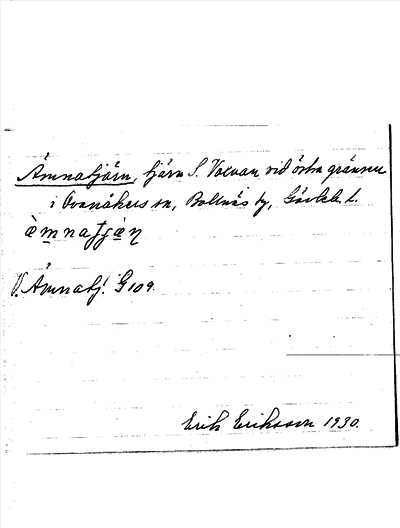 Ämnatjärn, tjärn S. Voxnan vid östra gränsen
i Ovanåkers sn, Bollnäs tg, Gävleb. l.
V. Ämnatj. G 109.
Erik Eriksson 1930.